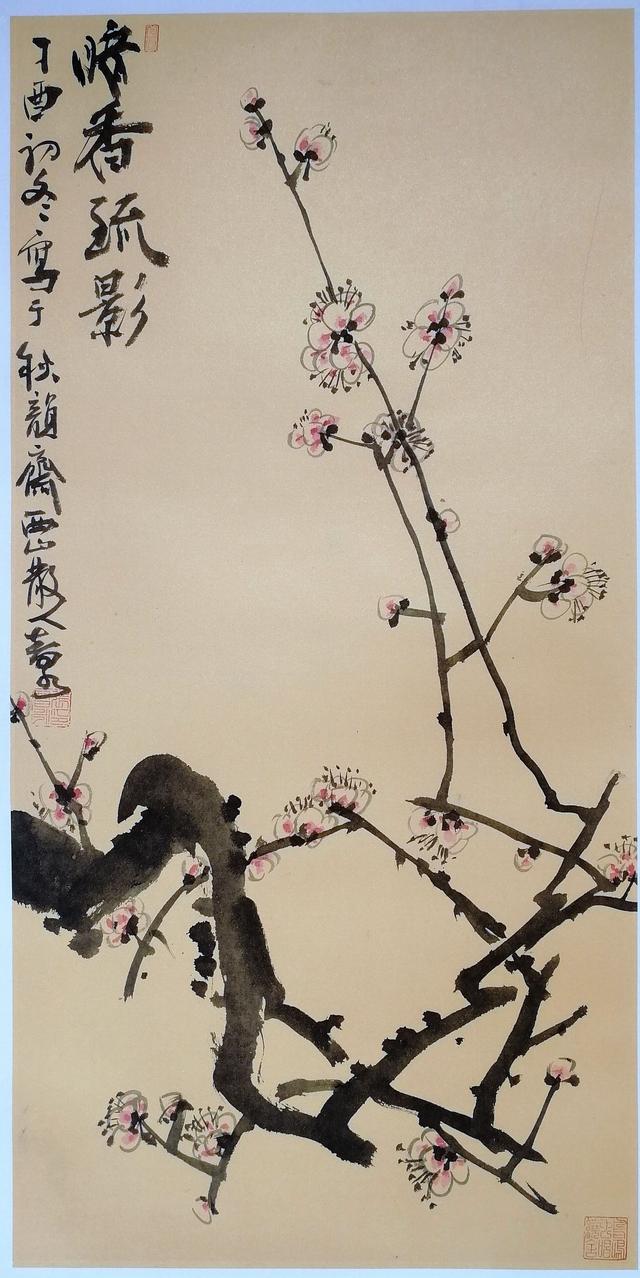 暗香疏影
丁酉初冬寫于秋韻齋西山散人